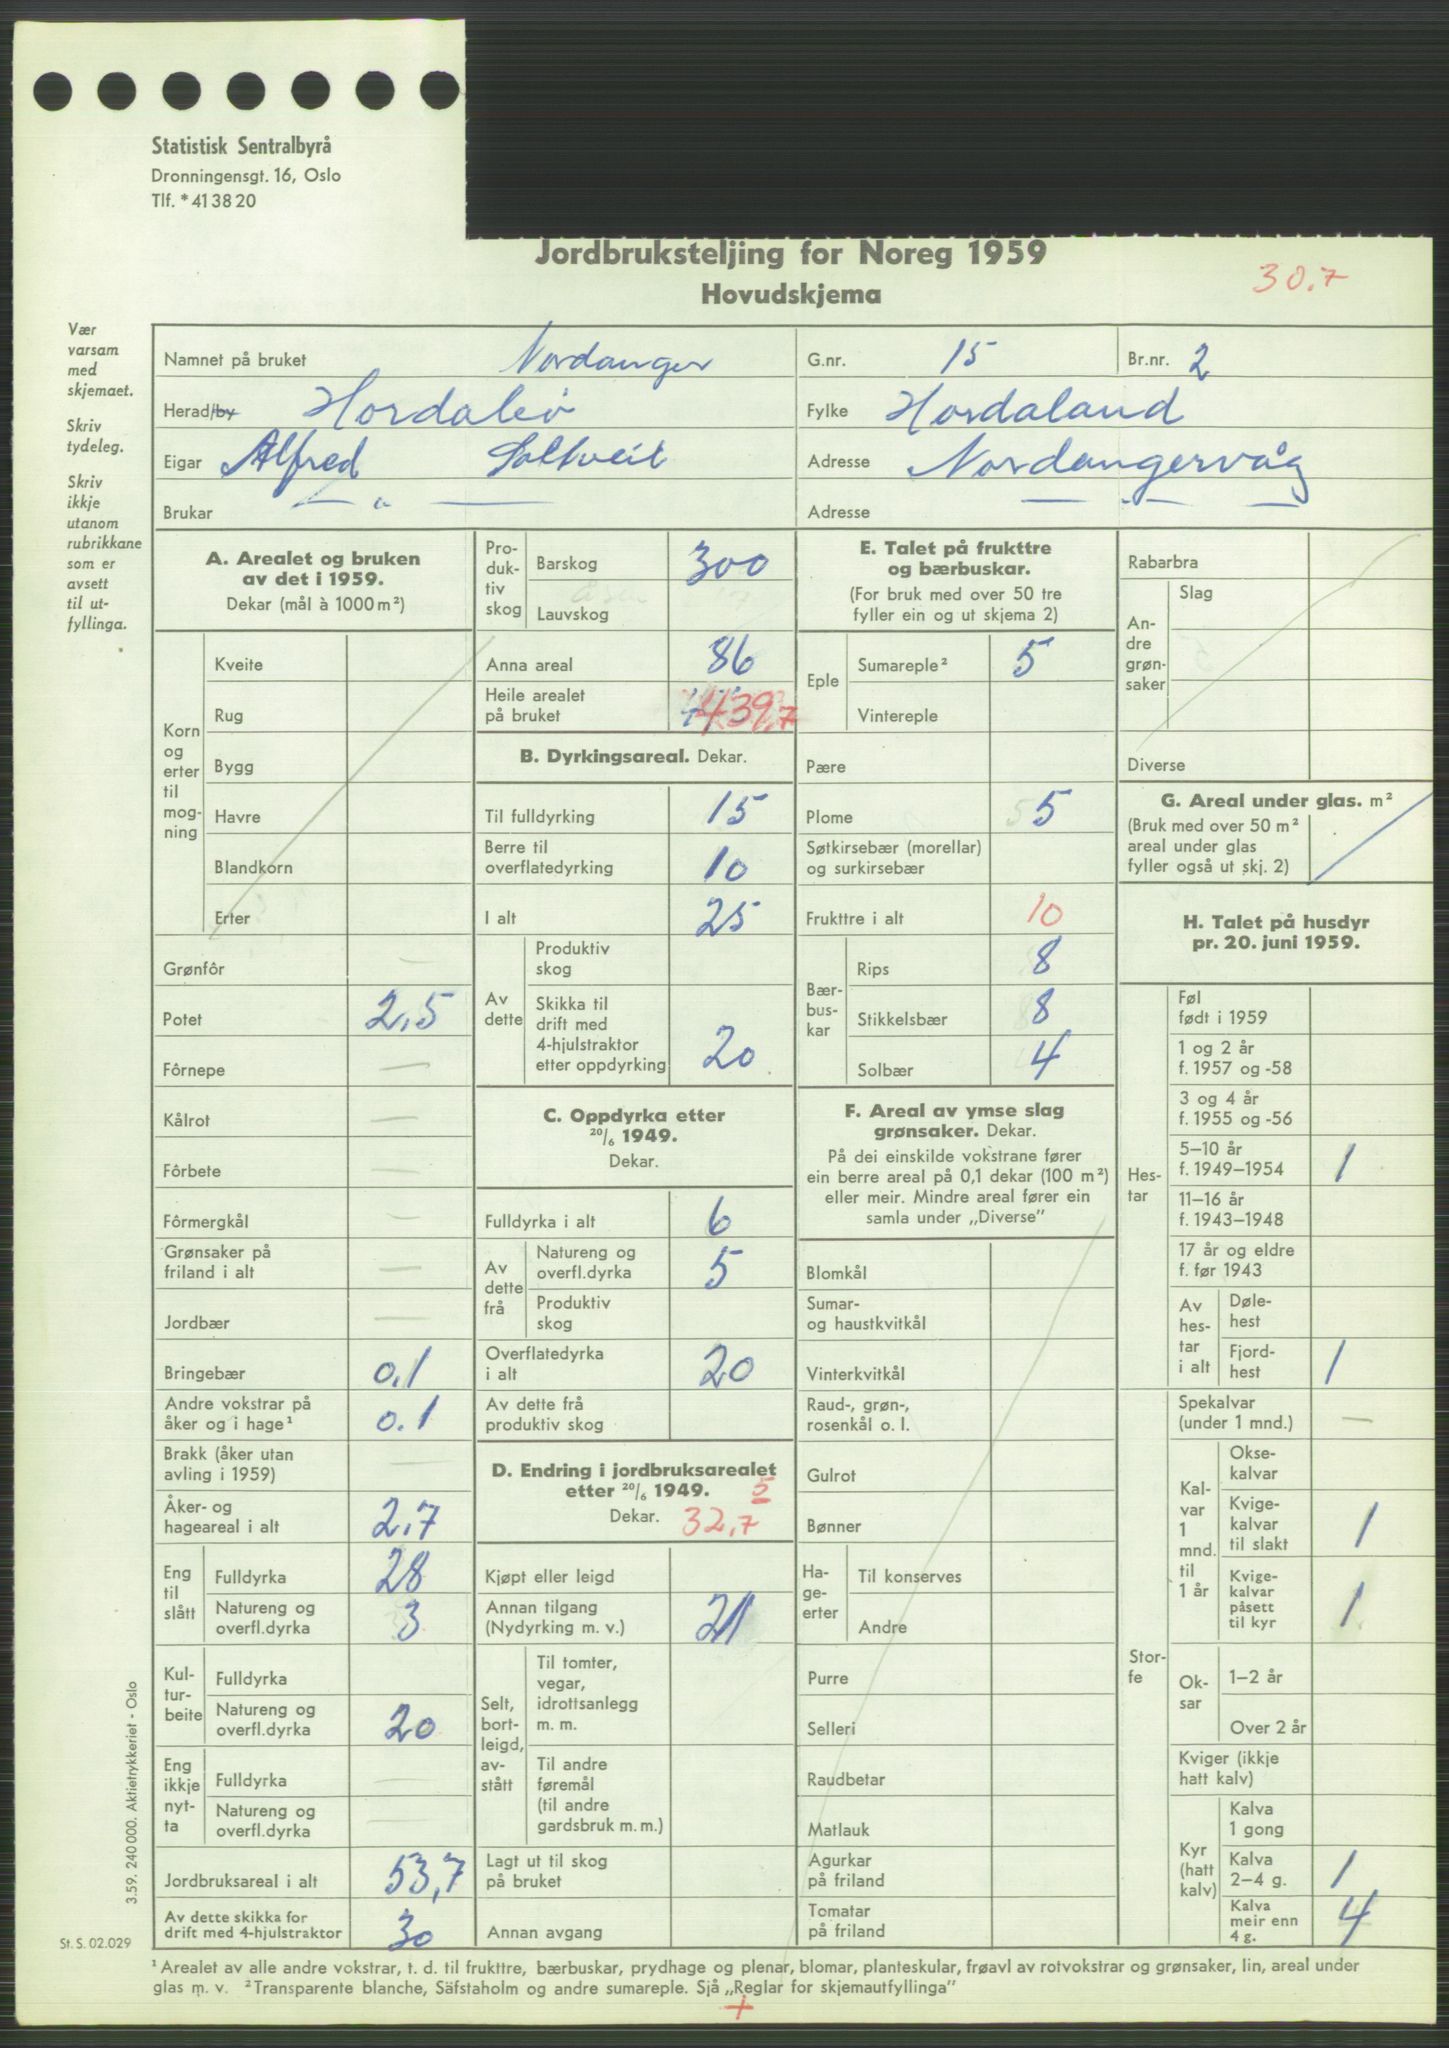 Statistisk Sentralbyrå
Dronningensgt. 16, Oslo
Tlf. * 41 38 20
Jordbruksteljing for Noreg 1959
Hovudskjema
30.7
Vær
varsam
med
skjemaet.
Skriv
tydeleg.
Skriv
ikkje
utanom
rubrikkane
som er
avsett
til ut-
fyllinga.
Namnet på bruket Nordanger G.nr. 15 Br.nr. 2
Herad/by Hordabø Fylke Hordaland
Eigar Alfred Soltveit Adresse Nordangervåg
Brukar — " — Adresse — " —
A. Arealet og bruken
av det i 1959.
Dekar (mål à 1000 m²)
Korn
og
erter
til
mog-
ning
Kveite
Rug
Bygg
Havre
Blandkorn
Erter
Grønfôr —
Potet 2,5
Fôrnepe —
Kålrot —
Fôrbete —
Fôrmergkål —
Grønsaker på
friland i alt —
Jordbær —
Bringebær 0.1
Andre vokstrar på
åker og i hage¹ 0.1
Brakk (åker utan
avling i 1959) —
Åker- og
hageareal i alt 2,7
Eng
til
slått
Fulldyrka 28
Natureng og
overfl.dyrka 3
Kul-
tur-
beite
Fulldyrka
Natureng og
overfl.dyrka 20
Eng
ikkje
nyt-
ta
Fulldyrka —
Natureng og
overfl.dyrka —
Jordbruksareal i alt 53,7
Av dette skikka for
drift med 4-hjulstraktor 30
Pro-
duk-
tiv
skog
Barskog 300
Lauvskog
Anna areal 86
Heile arealet
på bruket 439,7
B. Dyrkingsareal. Dekar.
Til fulldyrking 15
Berre til
overflatedyrking 10
I alt 25
Av
dette
Produktiv
skog
Skikka til
drift med
4-hjulstraktor
etter oppdyrking 20
C. Oppdyrka etter
²⁰/₆ 1949.
Dekar.
Fulldyrka i alt 6
Av
dette
frå
Natureng og
overfl.dyrka 5
Produktiv
skog
Overflatedyrka
i alt 20
Av dette frå
produktiv skog
D. Endring i jordbruksarealet
etter ²⁰/₆ 1949. 5
Dekar. 32,7
Kjøpt eller leigd
Annan tilgang
(Nydyrking m. v.) 21
Selt,
bort-
leigd,
av-
stått
Til tomter,
vegar,
idrottsanlegg
m. m.
Til andre
føremål
(til andre
gardsbruk m. m.)
Lagt ut til skog
på bruket
Annan avgang
E. Talet på frukttre
og bærbuskar.
(For bruk med over 50 tre
fyller ein og ut skjema 2)
Eple
Sumareple² 5
Vintereple
Pære
Plome 5
Søtkirsebær (morellar)
og surkirsebær
Frukttre i alt 10
Bær-
bus-
kar
Rips 8
Stikkelsbær 8
Solbær 4
F. Areal av ymse slag
grønsaker. Dekar.
På dei einskilde vokstrane fører
ein berre areal på 0,1 dekar (100 m²)
eller meir. Mindre areal fører ein
samla under „Diverse"
Blomkål
Sumar-
og haustkvitkål
Vinterkvitkål
Raud-, grøn-,
rosenkål o. l.
Gulrot
Bønner
Ha-
ge-
erter
Til konserves
Andre
Purre
Selleri
Raudbetar
Matlauk
Agurkar
på friland
Tomatar
på friland
Rabarbra
An-
dre
grøn-
saker
Slag
Diverse
G. Areal under glas. m²
(Bruk med over 50 m²
areal under glas
fyller også ut skj. 2)
H. Talet på husdyr
pr. 20. juni 1959.
Hes-
tar
Føl
født i 1959
1 og 2 år
f. 1957 og -58
3 og 4 år
f. 1955 og -56
5–10 år
f. 1949–1954 1
11–16 år
f. 1943–1948
17 år og eldre
f. før 1943
Av
hes-
tar
i alt
Døle-
hest
Fjord-
hest 1
Stor-
fe
Spekalvar
(under 1 mnd.) —
Kal-
var
1
mnd.
til
1 år
Okse-
kalvar
Kvige-
kalvar
til slakt 1
Kvige-
kalvar
påsett
til kyr 1
Ok-
sar
1–2 år
Over 2 år
Kviger (ikkje
hatt kalv)
Kyr
(hatt
kalv)
Kalva
1 gong
Kalva
2–4 g. 1
Kalva
meir enn
4 g. 4
3.59. 240 000. Aktietrykkeriet - Oslo
St. S. 02.029
¹ Arealet av alle andre vokstrar, t. d. til frukttre, bærbuskar, prydhage og plenar, blomar, planteskular, frøavl av rotvokstrar og grønsaker, lin, areal under
glas m. v. ² Transparente blanche, Säfstaholm og andre sumareple. Sjå „Reglar for skjemautfyllinga"
+